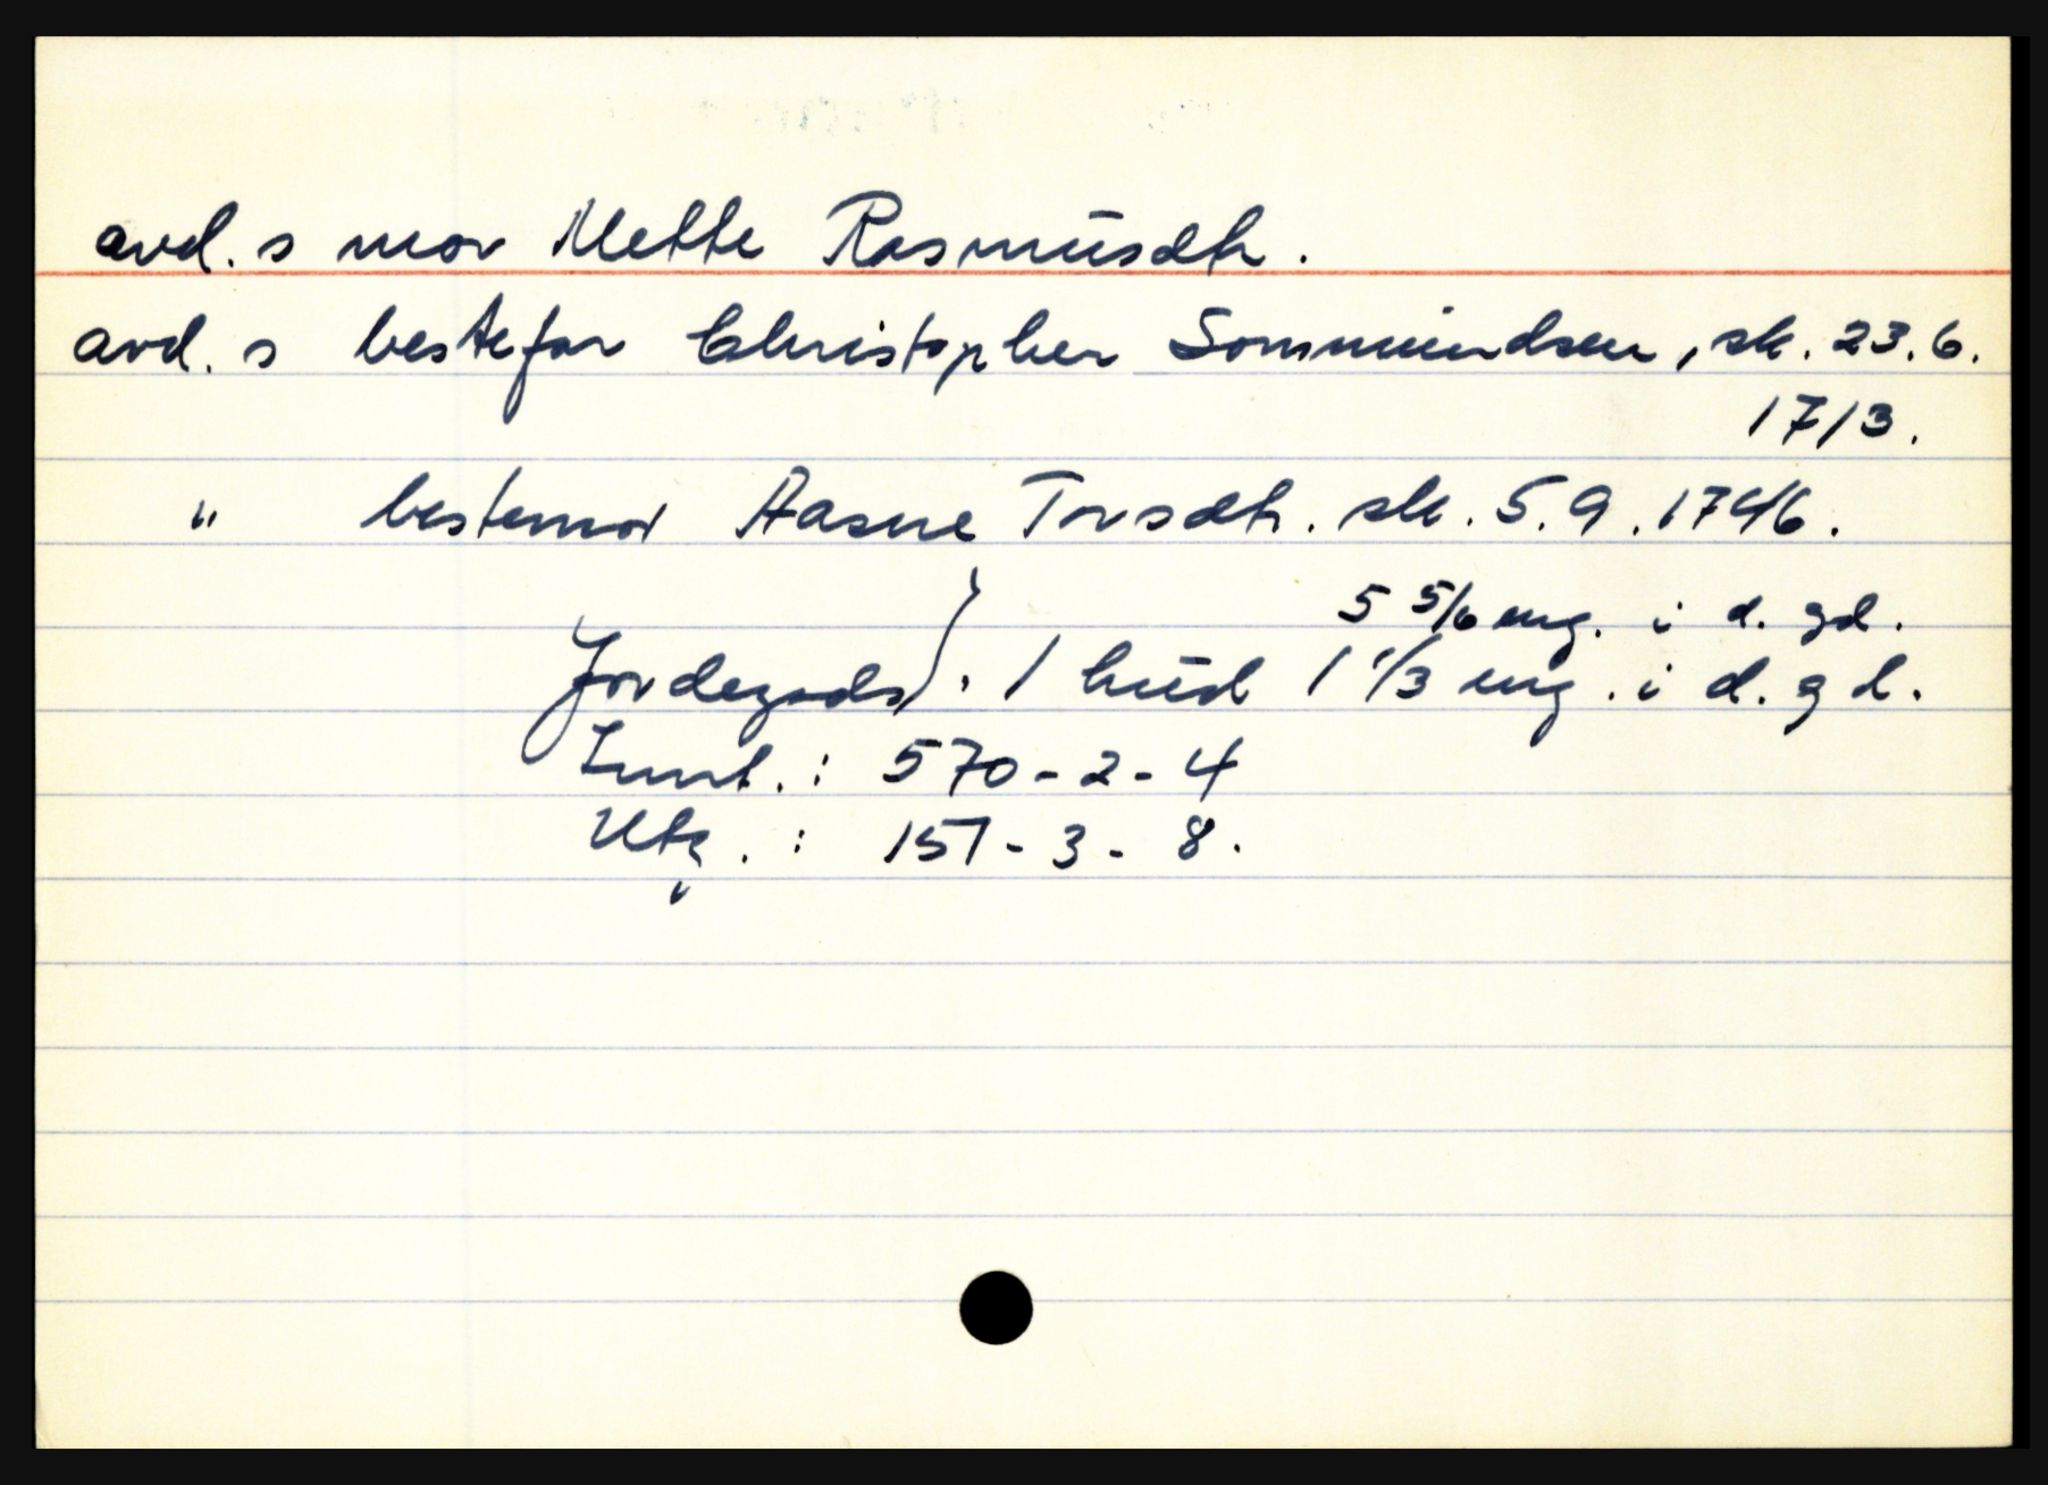 avd. s mor Mette Rasmusdtr.
avd. s bestefar Christopher Sommundsen, sk. 23.6.
1713.
" bestemor Aasne Torsdtr. sk. 5.9.1746.
5 5/6 mg. i d. gd.
Jordegods } . 1 hud 1 1/3 mg. i d. gd.
: 570-2-4
Utg. : 157-3-8.